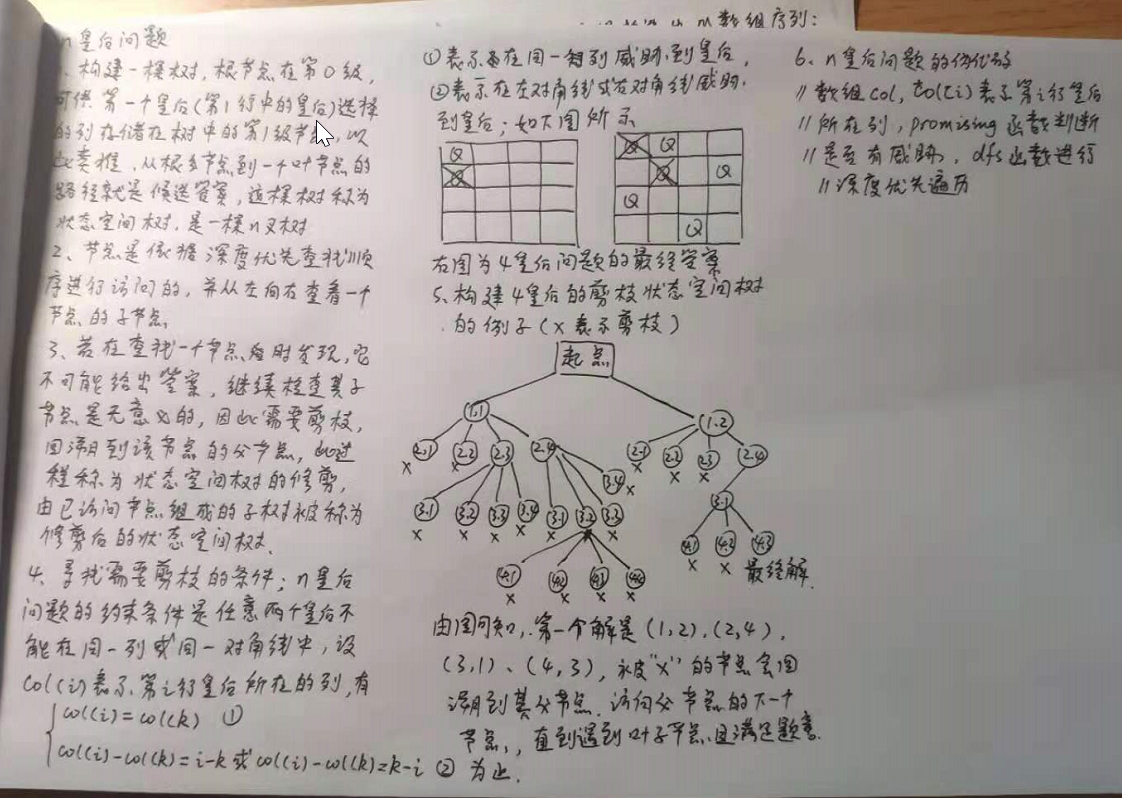 数组序列:
n皇后问题
1、构建一棵树,根节点在第0级,
可供第一个皇后(第1行中的皇后)选择
的列存储在树中的第1级节点,以
此类推,从根节点到一个叶节点的
路径就是候选答案,这棵树称为
状态空间树,是一棵n叉树
2、节点是依据深度优先查找顺
序进行访问的,并从左向右查看一个
节点的子节点,
3、若在查找一个节点时发现,它
不可能给出答案,继续检查其子
节点是无意义的,因此需要剪枝,
回溯到该节点的父节点,此过
程称为状态空间树的修剪,
由已访问节点组成的子树被称为
修剪后的状态空间树.
4、寻找需要剪枝的条件;n皇后
问题的约束条件是任意两个皇后不
能在同一列或同一对角线中,设
col(i)表示第i行皇后所在的列,有
col(i)=col(k) ①
col(i)-col(k)=i-k或col(i)-col(k)=k-i ②
①表示在同一列威胁到皇后,
②表示在左对角线或右对角线威胁
到皇后;如下图所示
Q
Q
Q Q
Q Q
Q
Q
右图为4皇后问题的最终答案
5、构建4皇后的剪枝状态空间树
的例子(×表示剪枝)
起点
1.1 1.2
2.1 2.2 2.3 2.4 2.1 2.2 2.3 2.4
× × × × ×
3.1 3.2 3.3 3.4 3.1 3.2 3.3 3.4 3.1
× × × × × × ×
4.1 4.2 4.3
× × 最终解.
4.1 4.2 4.1 4.4
× × × ×
由图可知,第一个解是(1,2),(2,4),
(3,1)、(4,3),被"×"的节点会回
溯到其父节点,访问父节点的下一个
节点,直到遇到叶子节点且满足题意
为止.
6、n皇后问题的伪代码
//数组col,col(i)表示第i行皇后
//所在列,promising函数判断
//是否有威胁,dfs函数进行
//深度优先遍历